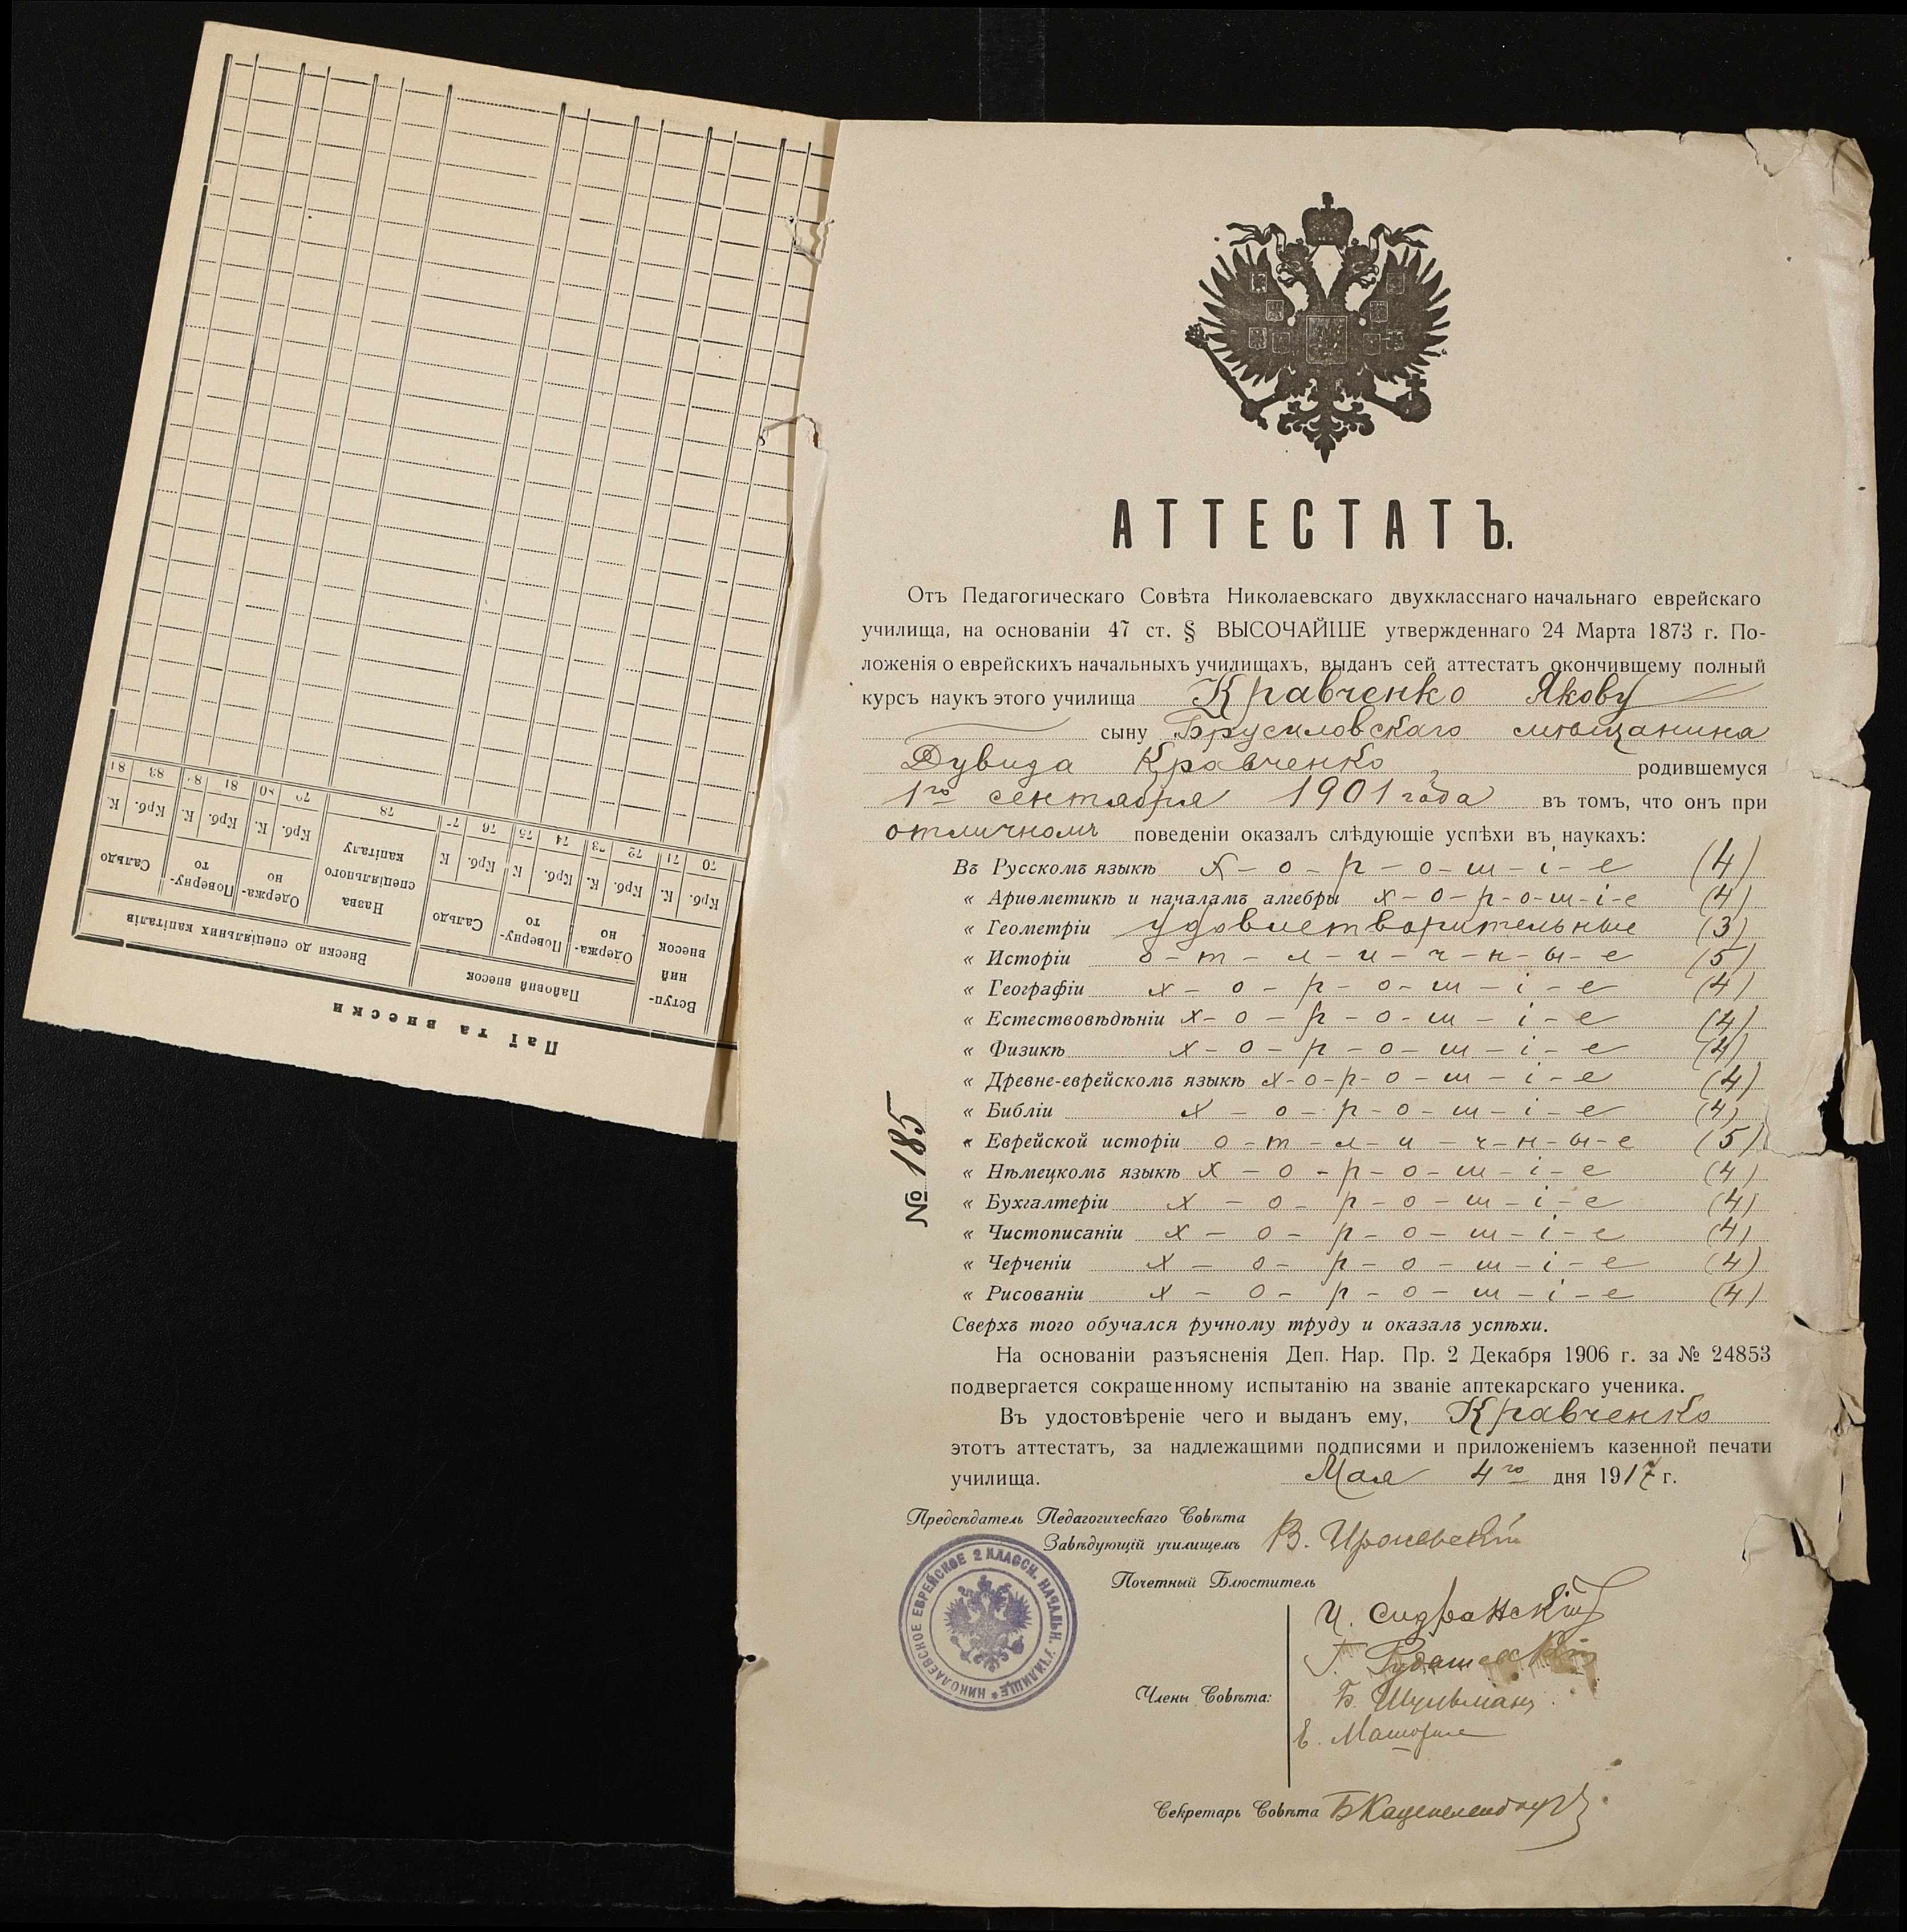 АТТЕСТАТЪ.
Отъ Педагогическаго Совѣта Николаевскаго двухкласснаго начальнаго еврейскаго
училища, на основаніи 47 ст. § ВЫСОЧАЙШЕ утвержденнаго 24 Марта 1873 г. По-
ложенія о еврейскихъ начальныхъ училищахъ, выданъ сей аттестатъ окончившему полный
курсъ наукъ этого училища Кравченко Якову
сыну Брусиловскаго мѣщанина
Дувида Кравченко родившемуся
1го сентября 1901 года въ томъ, что онъ при
отличномъ поведеніи оказалъ слѣдующіе успѣхи въ наукахъ:
Въ Русскомъ языкѣ х-о-р-о-ш-і-е (4)
“ Ариѳметикѣ и началамъ алгебры х-о-р-о-ш-і-е (4)
“ Геометріи удовлетворительные (3)
“ Исторіи о-т-л-и-ч-н-ы-е (5)
“ Географіи х-о-р-о-ш-і-е (4)
“ Естествовѣдѣніи х-о-р-о-ш-і-е (4)
“ Физикѣ х-о-р-о-ш-і-е (4)
“ Древне-еврейскомъ языкѣ х-о-р-о-ш-і-е (4)
“ Библіи х-о-р-о-ш-і-е (4)
“ Еврейской исторіи о-т-л-и-ч-н-ы-е (5)
“ Нѣмецкомъ языкѣ х-о-р-о-ш-і-е (4)
“ Бухгалтеріи х-о-р-о-ш-і-е (4)
“ Чистописаніи х-о-р-о-ш-і-е (4)
“ Черченіи х-о-р-о-ш-і-е (4)
“ Рисованіи х-о-р-о-ш-і-е (4)
Сверхъ того обучался ручному труду и оказалъ успѣхи.
На основаніи разъясненія Деп. Нар. Пр. 2 Декабря 1906 г. за № 24853
подвергается сокращенному испытанію на званіе аптекарскаго ученика.
Въ удостовѣреніе чего и выданъ ему, Кравченко
этотъ аттестатъ, за надлежащими подписями и приложеніемъ казенной печати
училища. Мая 4го дня 1917 г.
№ 185
Предсѣдатель Педагогическаго Совѣта
Завѣдующій училищемъ В.
Почетный Блюститель
Члены Совѣта:
И. Сидранскій
Г.
Б. Шульманъ
Е.
Секретарь Совѣта Б
НИКОЛАЕВСКОЕ ЕВРЕЙСКОЕ 2 КЛАССН. НАЧАЛЬН. УЧИЛИЩЕ *
Паї та внески
Вступ-
ний
внесок
Пайовий внесок
Внески до спеціяльних капіталів
Одержа-
но
Поверну-
то
Сальдо
Назва
спеціяльного
капіталу
Одержа-
но
Поверну-
то
Сальдо
Крб. К. Крб. К. Крб. К Крб. К Крб. К. Крб. К. Крб. К.
70 71 72 73 74 75 76 78 81 83